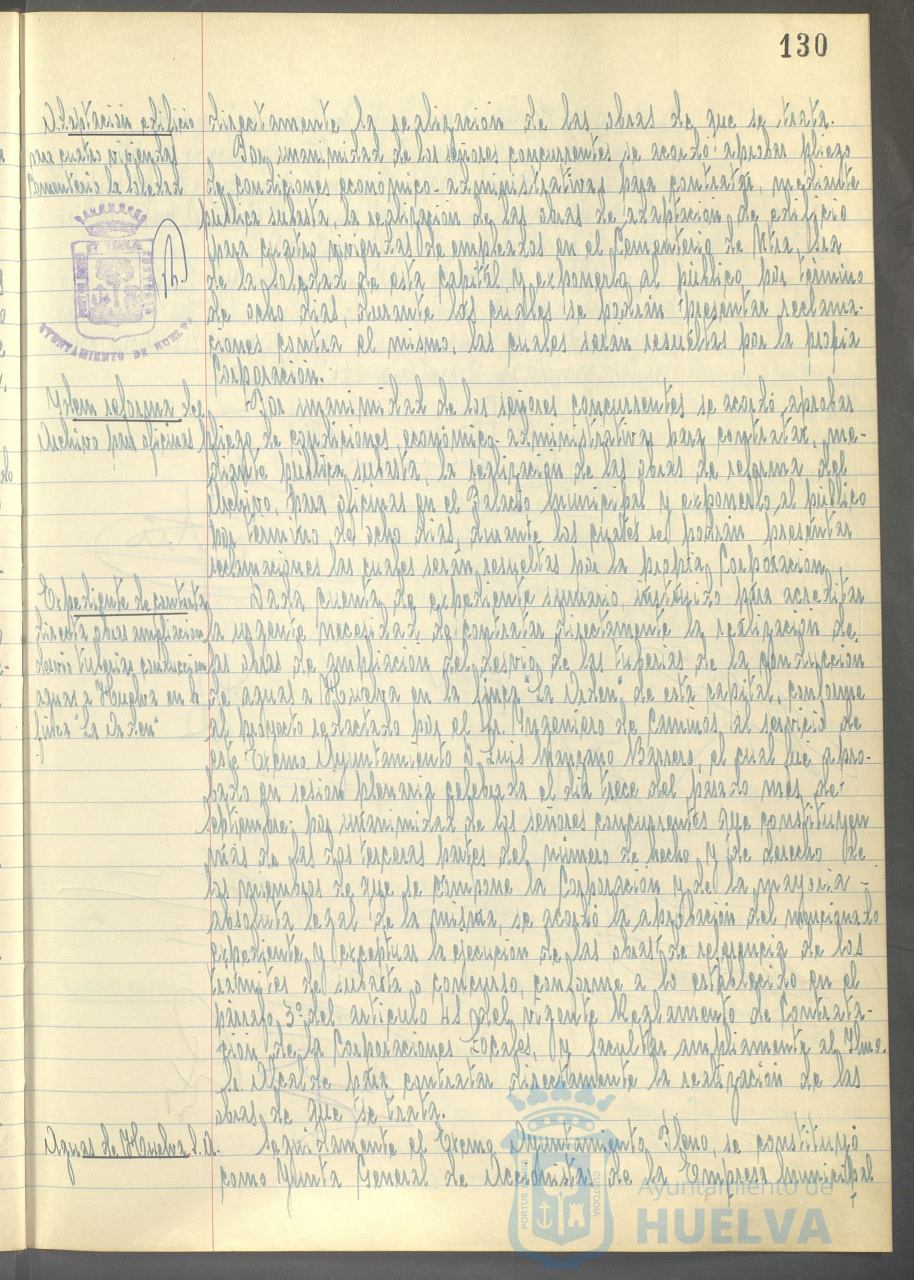 130
Adaptación edificio
para cuatro viviendas
Cementerio la Soledad
AYUNTAMIENTO DE HUELVA
directamente la realización de las obras de que se trata.
Por unanimidad de los señores concurrentes se acordó aprobar pliego
de condiciones económico-administrativas para contratar, mediante
pública subasta, la realización de las obras de adaptación de edificio
para cuatro viviendas de empleados en el Cementerio de Ntra. Sra.
de la Soledad de esta capital y exponerlo al público por término
de ocho días, durante los cuales se podrán presentar reclama-
ciones contra el mismo, las cuales serán resueltas por la propia
Corporación.
Idem reforma del
Archivo para oficinas
Por unanimidad de los señores concurrentes se acordó aprobar
pliego de condiciones económico-administrativas para contratar, me-
diante pública subasta, la realización de las obras de reforma del
Archivo, para oficinas en el Palacio Municipal y exponerlo al público
por término de ocho días, durante los cuales se podrán presentar
reclamaciones las cuales serán resueltas por la propia Corporación.
Expediente de contrata
directa obras ampliación
desvío tuberías conducción
aguas a Huelva en la
finca "La Orden"
Dada cuenta de expediente sumario, instruido para acreditar
la urgente necesidad de contratar directamente la realización de
las obras de ampliación del desvío de las tuberías de la conducción
de aguas a Huelva en la finca "La Orden" de esta capital, conforme
al proyecto redactado por el Sr. Ingeniero de Caminos al servicio de
este Excmo. Ayuntamiento D. Luis Manzano Barrero, el cual fué apro-
bado en sesión plenaria celebrada el día trece del pasado mes de
septiembre; por unanimidad de los señores concurrentes que constituyen
más de las dos terceras partes del número de hecho y de derecho de
los miembros de que se compone la Corporación y de la mayoría
absoluta legal de la misma, se acordó la aprobación del mencionado
expediente y exceptuar la ejecución de las obras de referencia de los
trámites de subasta o concurso, conforme a lo establecido en el
párrafo 3º del artículo 41 del vigente Reglamento de Contrata-
ción de la Corporaciones Locales, y facultar ampliamente al Ilmo.
Sr. Alcalde para contratar directamente la realización de las
obras de que se trata.
Aguas de Huelva S.A.
Seguidamente el Excmo. Ayuntamiento Pleno, se constituyó
como Junta General de Accionistas de la Empresa Municipal
PORTUS MARIS
CUSTODIA
Ayuntamiento de
HUELVA